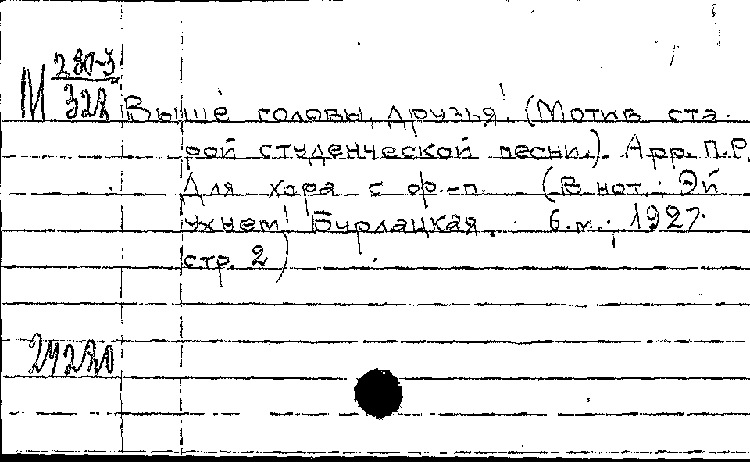 М 280-3
328
Выше головы, друзья! (Мотив ста-
рой студенческой песни.). Арр. П.Р.
Для хора с ф.-п. (В нот.: Эй
ухнем! Бурлацкая. б.м., 1927.
стр. 2)
24220